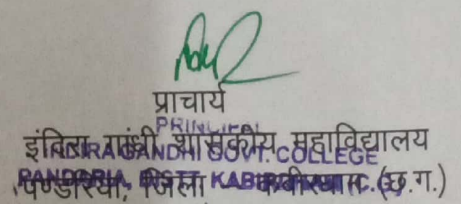 प्राचार्य
PRINCIPAL
इंदिरा गांधी शासकीय महाविद्यालय
INDIRA GANDHI GOVT. COLLEGE
पण्डरिया, जिला कबीरधाम (छ.ग.)
PANDARIA, DISTT. KABIRDHAM C.G.